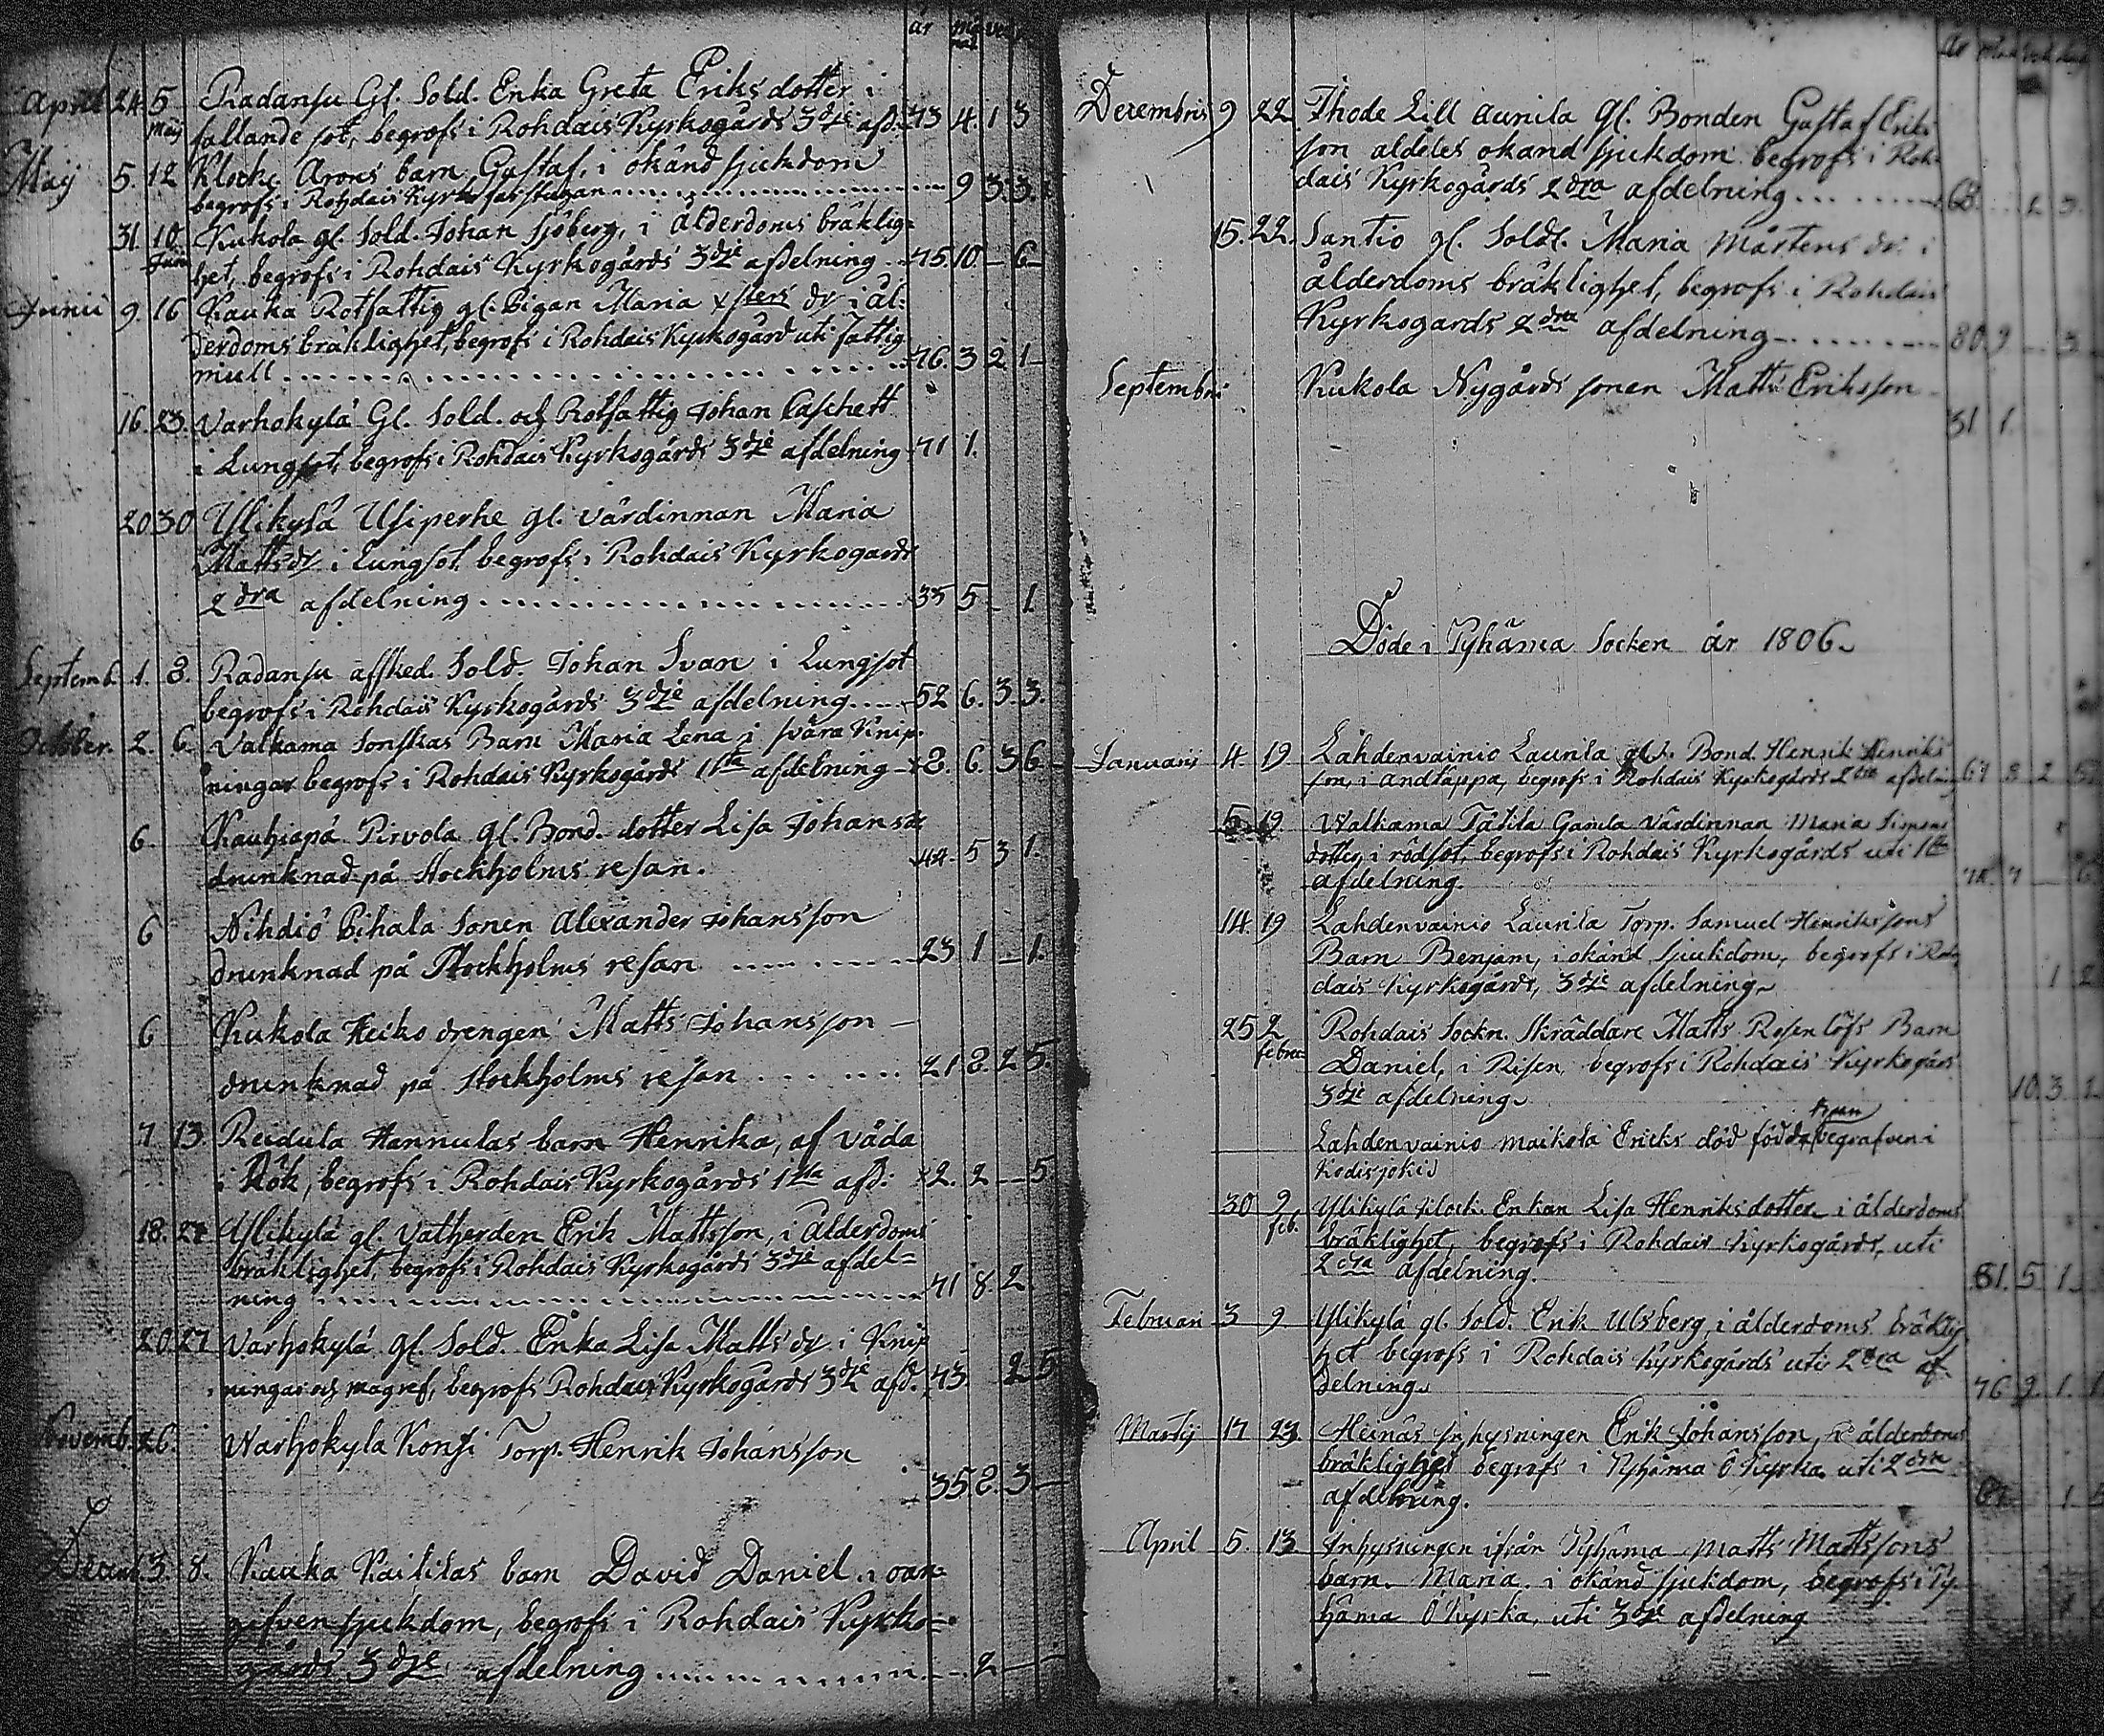 år
April 24 5 Radansu Gl. Sold. Enka Greta Eriksdotter i
Maij fallande sot, begrofs i Rohdais Kyrkogårds 3dje afd. 73 4. 1 3
Maij 5. 12 Klocke Arons barn Gustaf, i okänd sjukdom
begrofs i Rohdais Kyrko 9 3. 3.
31 10 Kukola gl. Sold. Johan Sjöberg, i ålderdoms bräklig-
Junii het, begrofs i Rohdais Kyrkogårds 3dje afdelning 75. 10 - 6 -
Junii 9. 16 Kauka Rotfattig gl. Pigan Maria dr i ål-
derdoms bräklighet, begrofs i Rohdais Kyrkogård uti fattig
mull 76. 3 2 1 -
16. 23. Varhokylä Gl. Sold. och Rotfattig Johan Caschett
i Lungsot, begrofs i Rohdais Kyrkogårds 3dje afdelning 71 1.
20 30 Ylikylä Usiperhe gl. värdinnan Maria
Matts dr i Lungsot, begrofs i Rohdais Kyrkogårds
2dra afdelning 35 5 - 1
Septemb. 1. 8. Radansu affsked. Sold. Johan Svan i Lungsot
begrofs i Rohdais Kyrkogårds 3dje afdelning 52 6. 3. 3.
October. 2. 6 Valkama Sonskas Barn Maria Lena i svåra Knip-
ningar begrofs i Rohdais Kyrkogårds 1sta afdelning 8. 6. 3 6 -
6. Kauhiapä Pirvola gl. Bond. dotter Lisa Johans dr
drunknad på Stockholms resan. 44. 5 3 1.
6 Nihdiö Pihala Sonen Alexander Johansson
drunknad på Stockholms resan 23 1 - 1.
6 Kukola Heiko drengen Matts Johansson -
drunknad på Stockholms resan 21 8. 2 5.
7 13 Reidula Hannulas barn Henrika, af våda
i Kök, begrofs i Rohdais Kyrkogårds 1sta afd: 2. 2 - 5
18. 27 Ylikylä gl. Vatherden Erik Mattsson, i ålderdoms
bräklighet, begrofs i Rohdais Kyrkogårds 3dje afdel=
ning 71 8. 2.
20. 27 Varhokylä gl. Sold. Enka Lisa Matts dr i Knip
ningar och magref, begrofs Rohdais Kyrkogårds 3dje afd. 73. 2 5
Novemb. 26. Warhokyla Konsi Torp. Henrik Johansson
35. 8. 3 -
Decemb. 3. 8. Kauka Kaitilas barn David Daniel i oan-
gifven sjukdom, begrofs i Rohdais Kyrko=
gårds 3dje afdelning - 2 -
Decembris 9 22 Thode Lill Aunila Gl. Bonden Gustaf Eriks
son aldeles okänd sjukdom begrofs i Roh-
dais Kyrkogårds 2dra afdelning 68.
15. 22. Santio gl. Maria Mårtens dr. i
ålderdoms bräklighet, begrofs i Rohdais
Kyrkogårds 2dra afdelning 80. 9 - 3
Septembri Kukola Nygårds sonen Matts Eriksson
31 1.
Döde i Pyhäma Socken år 1806.
Januarij 4. 19 Lahdenvainio Launila Bond. Henrik Henriks
son, i andtäppa, begrofs i Rohdais Kyrkogårds 2dra afdeln
5 19 Walkama Tätilä Gamla värdinnan Maria Simons
dotter, i rödsot, begrofs i Rohdais Kyrkogårds uti 1sta
afdelning.
14. 19 Lahdenvainio Launila Torp. Samuel Henrikssons
Barn Benjam, i okänd sjukdom, begrofs i Roh
dais Kyrkogårds, 3dje afdelning. 1 2
25 2 Rohdais Sockn. Skräddare Matts Rosenlöfs Barn
febru Daniel, i Risen, begrofs i Rohdais Kyrkogårds
3dje afdelning. 10. 3
Lahdenvainio Maikola Ericks död född begrafven i
Kodisjoki
30 9 Ylikylä Enkan Lisa Henriksdotter i ålderdoms
feb. bräklighet, begrofs i Rohdais Kyrkogårds, uti
2dra afdelning. 81. 5 1.
Februari 3 9 Ylikylä gl. Sold. Erik Ulsberg, i ålderdoms bräklig
het begrofs i Rohdais Kyrkogårds uti 2dra af-
delning. 76 9. 1.
Martij 17 23 Heinäs Inhysningen Erik Johansson, i ålderdoms
bräklighet begrofs i Pyhäma Ö Kyrka uti 2dra
afdelning.
April 5. 13 Inhysningen ifrån Pyhäma Matts Mattssons
barn. Maria. i okänd sjukdom, begrofs i Py
häma Ö Kyrka, uti 3dje afdelning